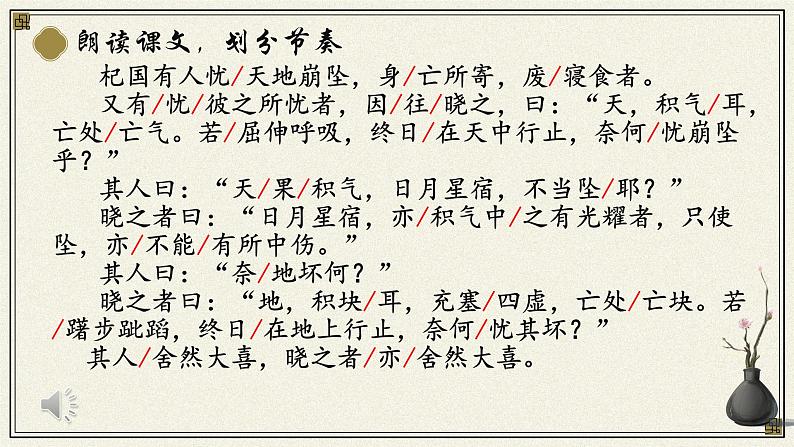 朗读课文，划分节奏
杞国有人忧/天地崩坠，身/亡所寄，废/寝食者。
又有/忧/彼之所忧者，因/往/晓之，曰：“天，积气/耳，
亡处/亡气。若/屈伸呼吸，终日/在天中行止，奈何/忧崩坠
乎？”
其人曰：“天/果/积气，日月星宿，不当坠/耶？”
晓之者曰：“日月星宿，亦/积气中/之有光耀者，只使
坠，亦/不能/有所中伤。”
其人曰：“奈/地坏何？”
晓之者曰：“地，积块/耳，充塞/四虚，亡处/亡块。若
/躇步跐蹈，终日/在地上行止，奈何/忧其坏？”
其人/舍然大喜，晓之者/亦/舍然大喜。